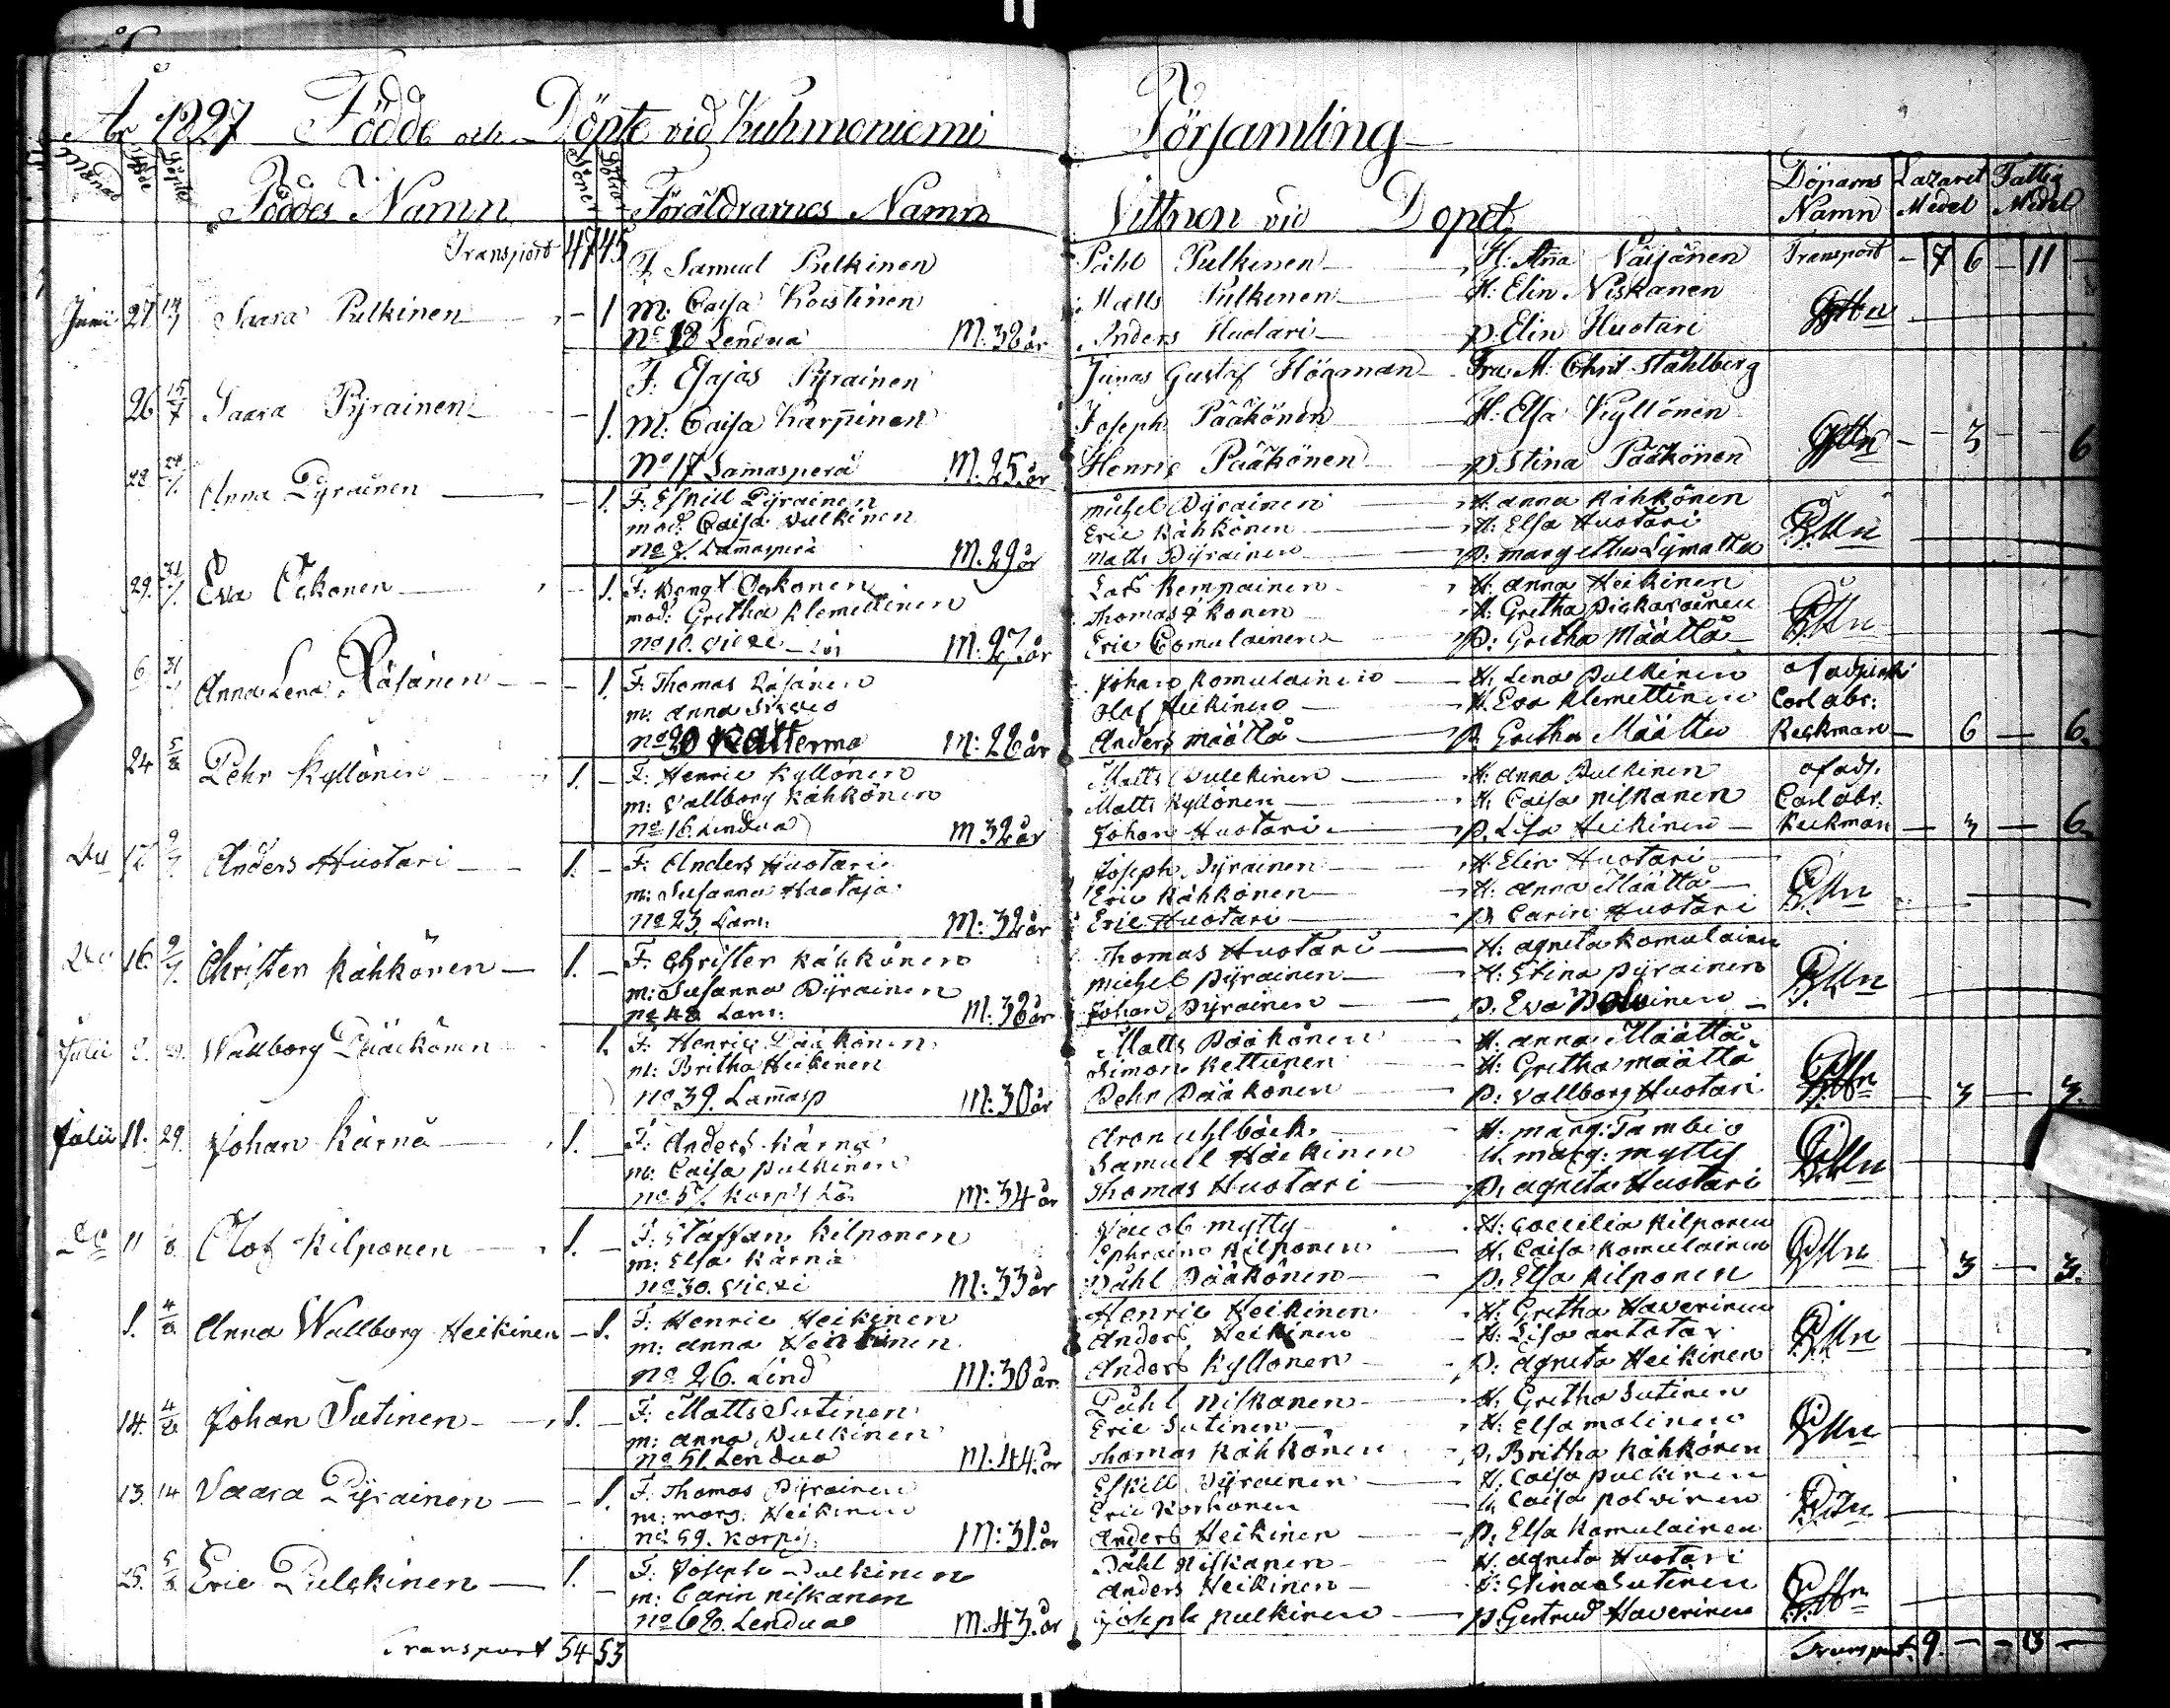 År 1827 Födde och Döpte vid Kuhmoniemi Församling
Månad Födde Döpte Föddes Namn Söner Döttrar Föräldrarnes Namn Vittnen vid Dopet Döparns Namn Lazaret Medel Fattig Medel
Transport 47 45 Transport 7 6 11
F. Samuel Pulkinen Påhl Pulkinen H: Aña Väisänen
Junii 27 Saara Pulkinen 1 M: Caisa Koistinen Matts Pulkinen H: Elin Niskanen
No 18 Lendua M: 38 år Anders Huotari p. Elin Huotari
F. Esajas Pyrainen Junas Gustaf Högman Fru M: Christ Ståhlberg
26 15/7 Saara Pyrainen 1. M: Caisa Karpinen Joseph Pääkönen H: Elsa Kyllönen 3 6
No 17 Lamasperä M. 25 år Henric Pääkönen p. Stina Pääkönen
28 Anna Pyrainen 1. F: Eskill Pyrainen Michel Pyrainen H: Anna Kähkönen
mod: Caisa Pulkinen Eric Kähkönen H: Elsa Huotari
Lam̄asperä M. 29 år Matts Pyrainen p. Margetha
29. 31/7. Eva Ockonen 1. F: Bengt Ockonen Lars Kempainen H: Anna Heikinen
mod: Gretha Klemettinen Thomas H: Gretha
No 10. M: 27 år Eric Comulainen p: Gretha Määttä
6 31 Anna Lena Räsänen 1. F: Thomas Räsänen Johan Komulainen H. Lena Pulkinen af
m: Anna Olof Heikinen H. Eva Klemettinen Carl Abr:
Katterma M: 28 år Anders Määttä p. Gretha Määttä Keckman 6 6.
24 5/8 Pehr Kyllönen 1. F: Henric Kyllönen Matts Pulckinen H: Anna Pulkinen af adj.
m: Vallborg Kähkönen Matts Kyllönen H. Caisa Niskanen Carl Abr.
No 16. Lendua M 32 år Johan Huotari p. Lisa Heikinen Keckman 3 6.
17 Anders Huotari 1. F: Anders Huotari Joseph Pyrainen H: Elin Huotari
m: Susanna Haataja Eric Kähkönen H: Anna Määttä
No 23. Lam: M: 32 år Eric Huotari p. Carin Huotari
16. Christer Kähkönen 1. F: Christer Kähkönen Thomas Huotari H: Agneta Komulainen
m: Susanna Pyrainen Michel Pyrainen H: Stina Pyrainen
No 48 Lam: M: 38 år Johan Pyrainen p. Eva
Julii 2. Wallborg Pääckönen 1. F: Henric Pääkönen Matts Pääkönen H. Anna Määttä
m: Britha Heikinen Simon Kettunen H: Gretha Määttä
No 39. Lam̄asp M: 30 år Pehr Pääkönen p: Vallborg Huotari 3 3.
Julii 11. 29. Johan Kärnä 1. F: Anders Kärnä Aron Uhlbäck H: Marg:
m: Caisa Pulkinen Samuel Häckinen H. Marg: Mytty
No 57. M: 34 år Thomas Huotari p. Agneta Huotari
11 Olof Kilponen 1. F: Staffan Kilponen Jacob Mytty H: Caecilia Kilponen
m: Elsa Kärnä Ephraim Kilponen H. Caisa Komulainen
No 30. Viexi M: 33 år Påhl Pääkönen p. Elsa Kilponen 3 3.
1. 4/8 Anna Wallborg Heikinen 1. F: Henric Heikinen Henric Heikinen H: Gretha Haverinen
m: Anna Heikinen Anders Heikinen H: Lisa
No 26. Lend M: 30 år Anders Kyllönen p: Agneta Heikinen
14. 4/8 Johan Sutinen 1. F: Matts Sutinen Påhl Niskanen H. Gretha Sutinen
m: Anna Pulkinen Eric Sutinen H: Elsa Malinen
No 51. Lendua M. 44. år Thomas Kähkönen p. Britha Kähkönen
13. 14 Saara Pyrainen 1. F. Thomas Pyrainen Eskill Pyrainen H. Caisa Pulkinen
m: Marg. Heikinen Eric Korhonen H. Caisa Polvinen
No 59. Korpis. M: 31 år Anders Heikinen p. Elsa Komulainen
25. 5/8 Eric Pulckinen 1. F: Joseph Pulkinen Påhl Niskanen H. Agneta Huotari
m: Carin Niskanen Anders Heikinen H: Stina Sutinen
Lendua M. 43. år Joseph Pulkinen p. Gertrud Haverinen
Transport 54 53 Transport. 9. 13